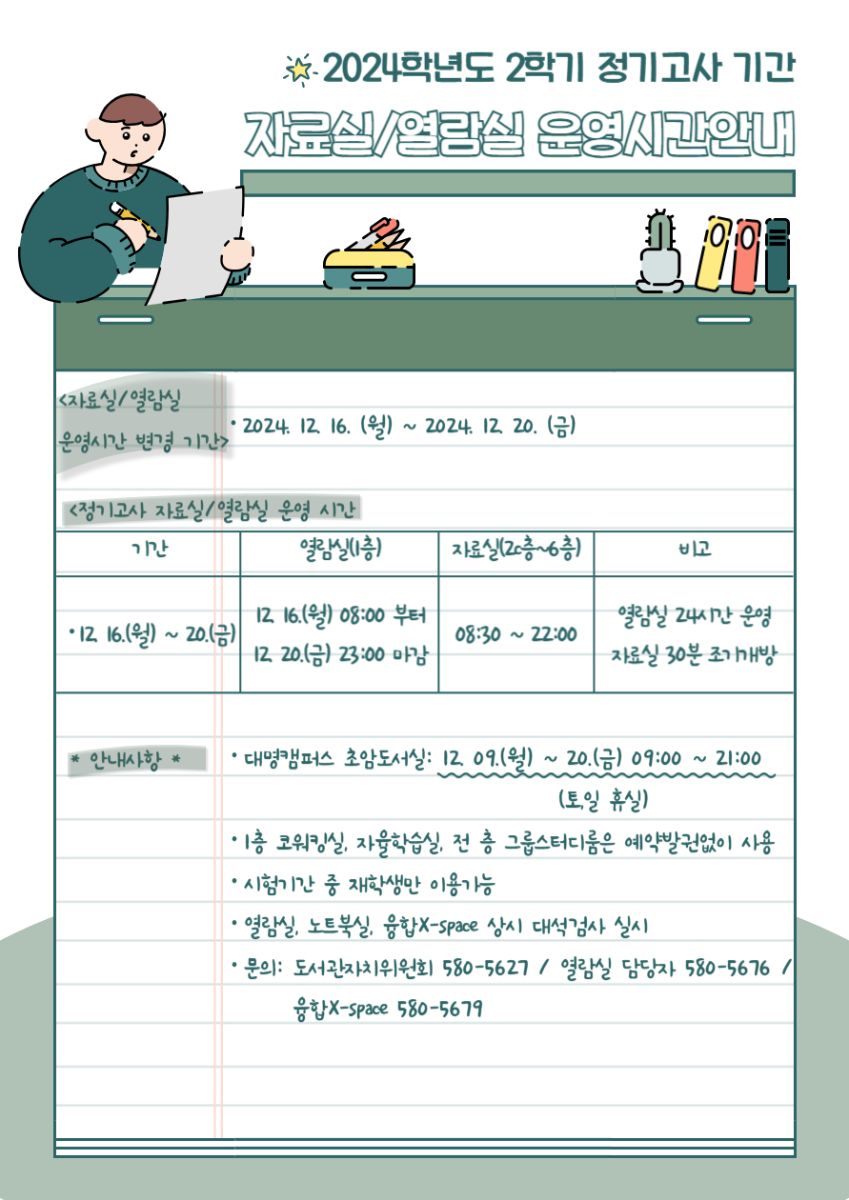 2024학년도 2학기 정기고사 기간
자료실/열람실 운영시간안내
<자료실/열람실
운영시간 변경 기간>
• 2024. 12. 16. (월) ~ 2024. 12. 20. (금)
<정기고사 자료실/열람실 운영 시간
기간 열람실(1층) 자료실(2c층~6층) 비고
• 12. 16.(월) ~ 20.(금)
12. 16.(월) 08:00 부터
12. 20.(금) 23:00 마감
08:30 ~ 22:00
열람실 24시간 운영
자료실 30분 조기개방
* 안내사항 *
• 대명캠퍼스 초암도서실: 12. 09.(월) ~ 20.(금) 09:00 ~ 21:00
(토,일 휴실)
• 1층 코워킹실, 자율학습실, 전 층 그룹스터디룸은 예약발권없이 사용
• 시험기간 중 재학생만 이용가능
• 열람실, 노트북실, 융합X-space 상시 대석검사 실시
• 문의: 도서관자치위원회 580-5627 / 열람실 담당자 580-5676 /
융합X-space 580-5679